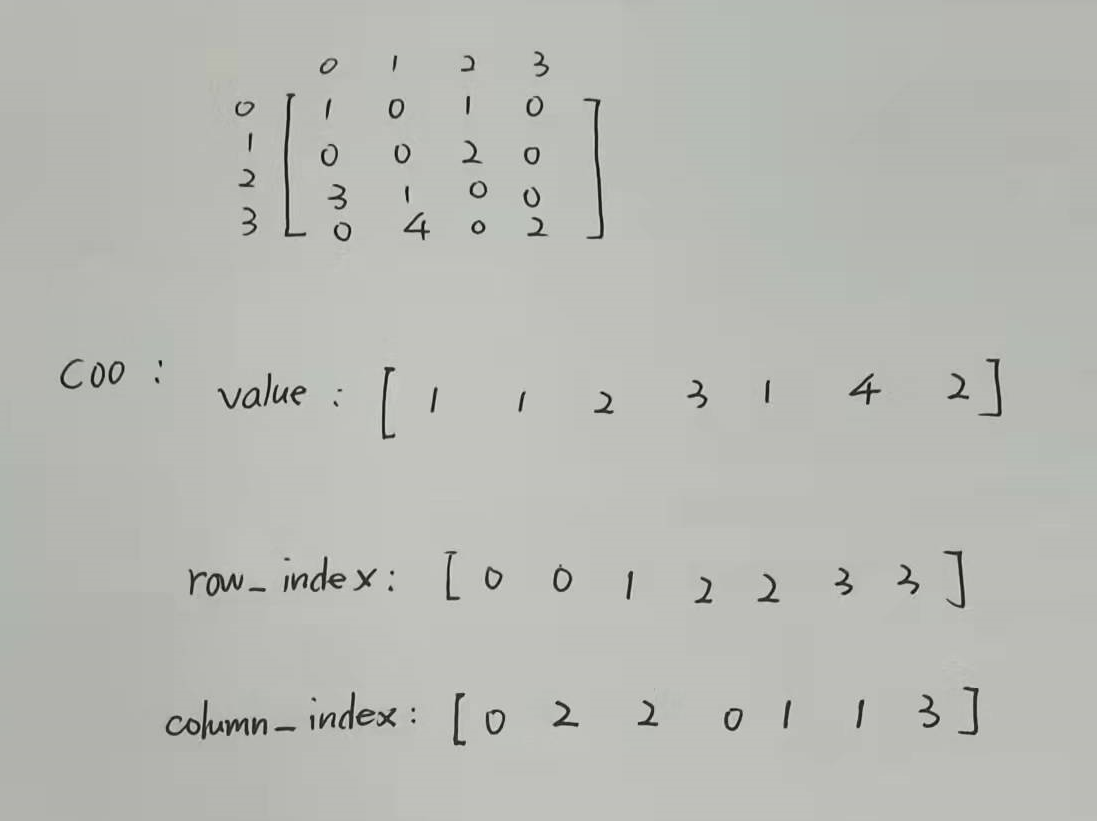 0 1 2 3
0 [ 1 0 1 0 ]
1 0 0 2 0
2 3 1 0 0
3 0 4 0 2
COO :
value : [ 1 1 2 3 1 4 2 ]
row_index: [ 0 0 1 2 2 3 3 ]
column_index: [ 0 2 2 0 1 1 3 ]